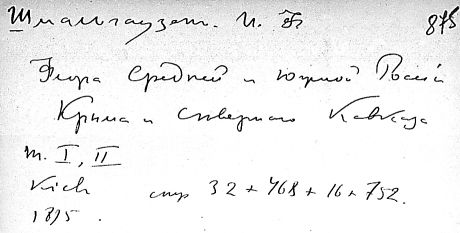 Шмальгаузен. И. Ф 875
Флора Средней и южной России
Крыма и Северного Кавказа
т. I, II
Kieb стр 32 + 468 + 16 + 752.
1895.